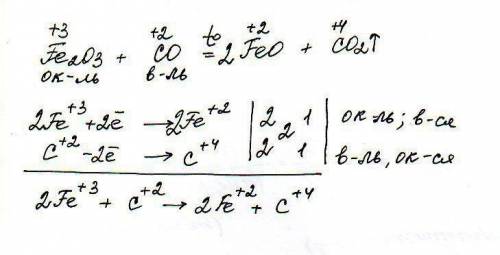 +3 +2 to +2 +4
Fe2O3 + CO = 2FeO + CO2↑
ок-ль в-ль
2Fe+3 + 2e̅ → 2Fe+2 | 2 | 2 | 1 | ок-ль; в-ся
C+2 - 2e̅ → C+4 | 2 | 1 | в-ль, ок-ся
2Fe+3 + C+2 → 2Fe+2 + C+4